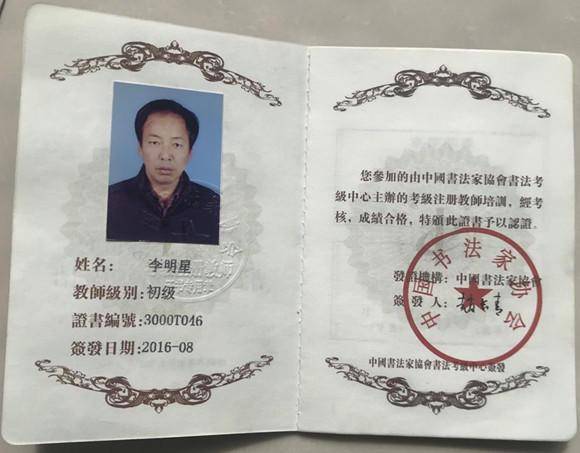 姓名: 李明星
教師級别:初级
證書編號:3000T046
簽發日期:2016-08
您參加的由中國書法家協會書法考
級中心主辦的考級注册教師培訓，經考
核，成績合格，特頒此證書予以認證。
發證機構: 中國書法家協會
簽發人:
中国书法家协会
中國書法家協會書法考級中心簽發